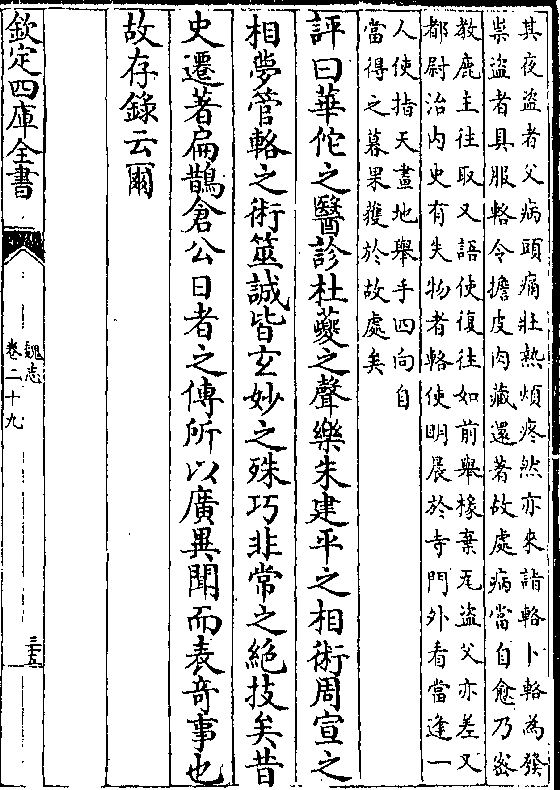 其夜盜者父病頭痛壯熱煩疼然亦來詣輅卜輅為發
祟盜者具服輅令擔皮肉藏還著故處病當自愈乃密
教鹿主往取又語使復往如前舉椽棄瓦盜父亦差又
都尉治内史有失物者輅使明晨於寺門外看當逢一
人使指天畫地舉手四向自
當得之暮果獲於故處矣
評曰華佗之醫診杜夔之聲樂朱建平之相術周宣之
相夢管輅之術筮誠皆玄妙之殊巧非常之絶技矣昔
史遷著扁鵲倉公日者之傳所以廣異聞而表奇事也
故存錄云爾
欽定四庫全書
魏志
卷二十九
三五